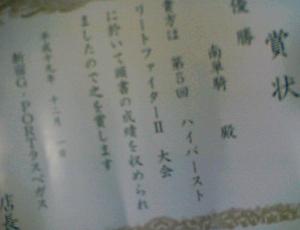 賞状
優勝
南単騎 殿
貴方は 第5回 ハイパースト
リートファイターII 大会
に於いて頭書の成績を収められ
ましたので之を賞します
平成十九年 十二月 一日
新宿G・PORTラスベガス
店長